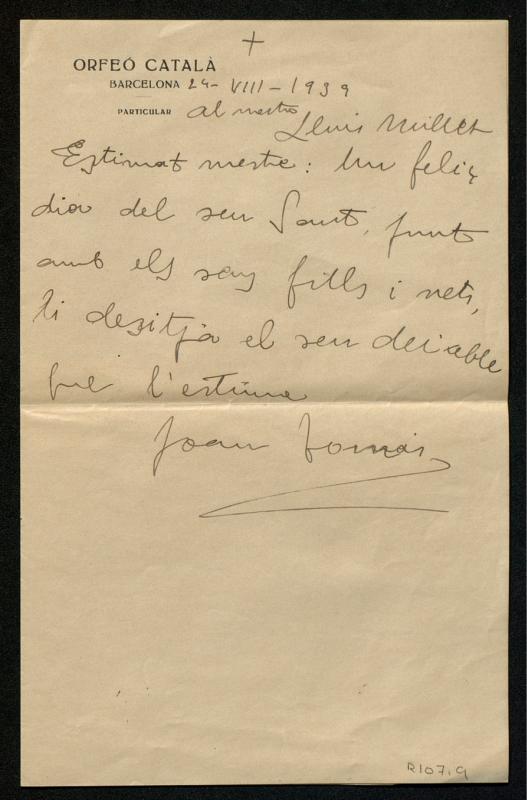 +
ORFEÓ CATALÀ
BARCELONA 24-VIII-1939
PARTICULAR al mestre
Lluis Millet
Estimat mestre: Un feliç
dia del seu Sant, junt
amb els seus fills i nets,
li desitja el seu deixeble
que l'estima
Joan Tomàs
R107.9